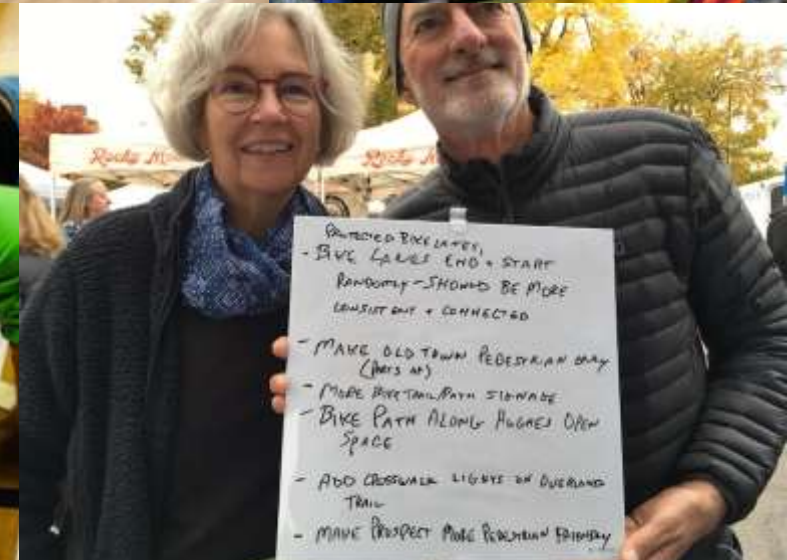 Rocky Mo
Rocky M
PROTECTED BIKE LANES,
- BIKE LANES END + START
RANDOMLY - SHOULD BE MORE
CONSISTENT + CONNECTED
- MAKE OLD TOWN PEDESTRIAN ONLY
(PARTS OF)
- MORE BIKE TRAIL/PATH SIGNAGE
- BIKE PATH ALONG HUGHES OPEN
SPACE
- ADD CROSSWALK LIGHTS ON OVERLAND
TRAIL
- MAKE PROSPECT MORE PEDESTRIAN FRIENDLY